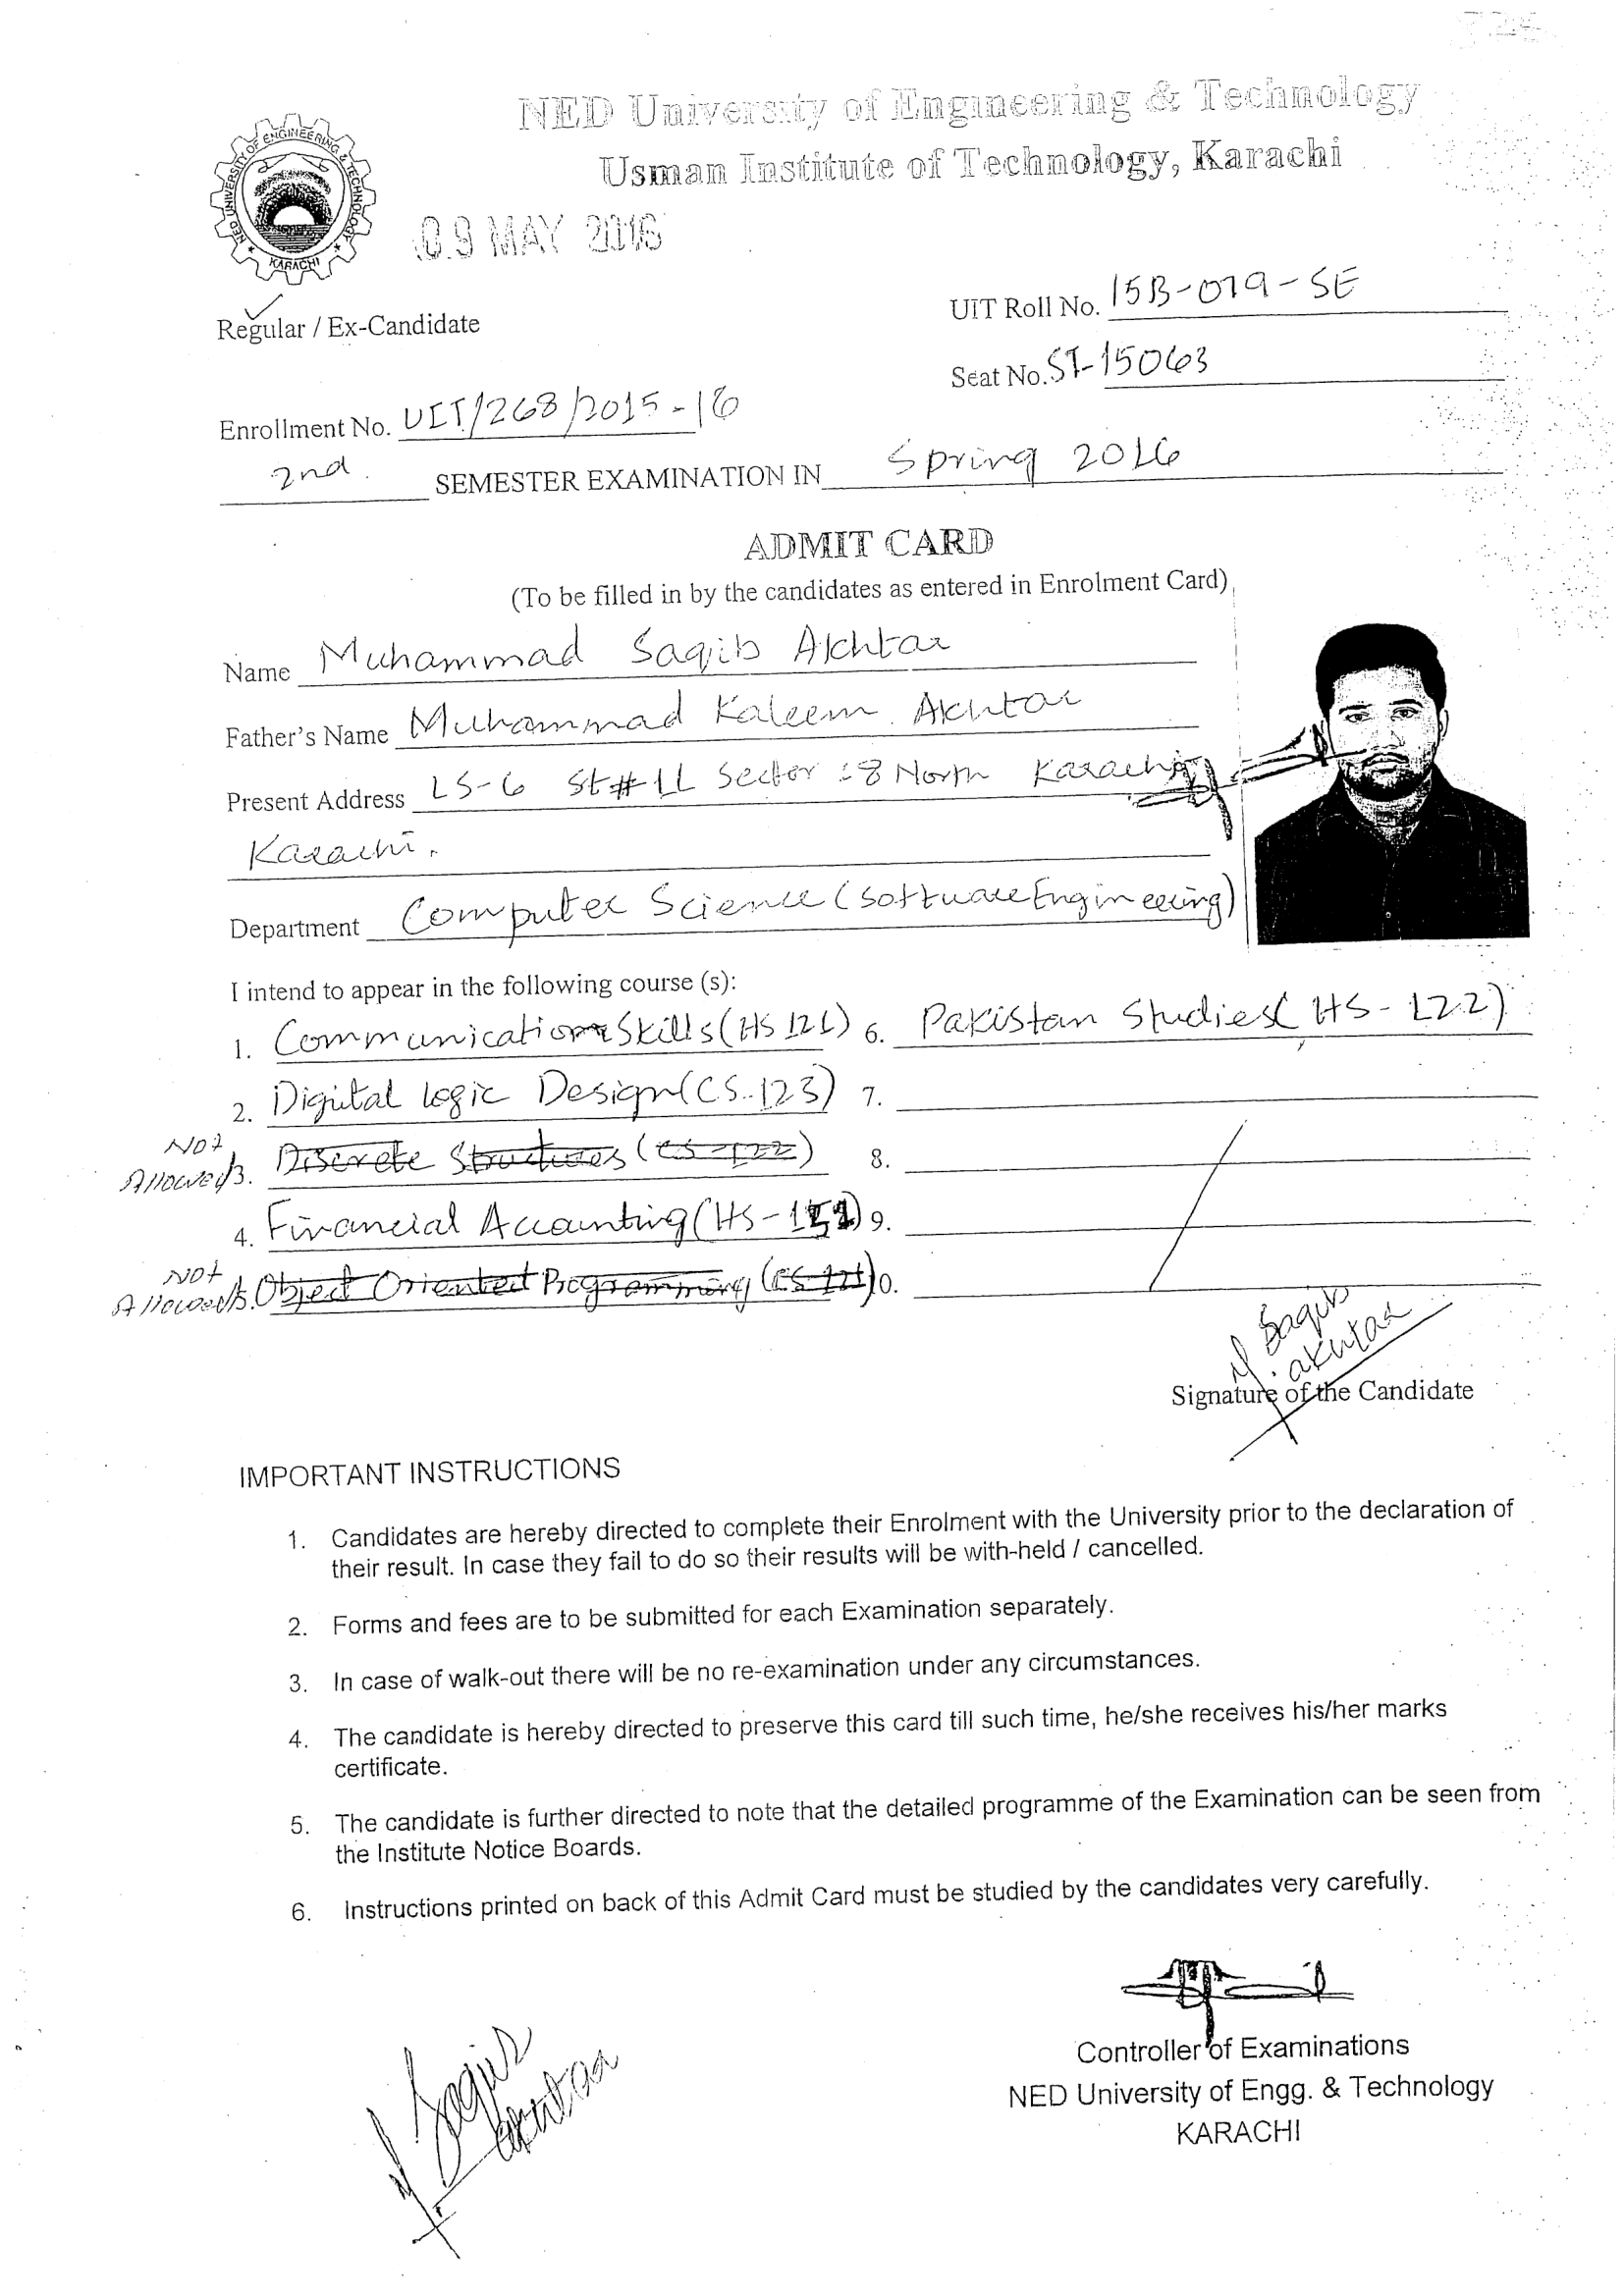 NED University of Engineering & Technology
Usman Institute of Technology, Karachi
NED UNIVERSITY OF ENGINEERING & TECHNOLOGY
KARACHI
09 MAY 2016
Regular / Ex-Candidate
UIT Roll No. 15B-079-SE
Seat No. ST-15063
Enrollment No. UIT/268/2015-16
2nd. SEMESTER EXAMINATION IN Spring 2016
ADMIT CARD
(To be filled in by the candidates as entered in Enrolment Card)
Name Muhammad Saqib Akhtar
Father's Name Muhammad Kaleem Akhtar
Present Address LS-6 St#11 Sector :8 North Karachi
Karachi.
Department Computer Science (Software Engineering)
I intend to appear in the following course (s):
1. Communication Skills (HS 121) 6. Pakistan Studies (HS-122)
2. Digital Logic Design (CS-123) 7.
Not
Allowed 3. Discrete Structures (CS-122) 8.
4. Financial Accounting (HS-151) 9.
Not
Allowed 5. Object Oriented Programming (CS-121) 10.
M. Saqib
akhtar
Signature of the Candidate
IMPORTANT INSTRUCTIONS
1. Candidates are hereby directed to complete their Enrolment with the University prior to the declaration of
their result. In case they fail to do so their results will be with-held / cancelled.
2. Forms and fees are to be submitted for each Examination separately.
3. In case of walk-out there will be no re-examination under any circumstances.
4. The candidate is hereby directed to preserve this card till such time, he/she receives his/her marks
certificate.
5. The candidate is further directed to note that the detailed programme of the Examination can be seen from
the Institute Notice Boards.
6. Instructions printed on back of this Admit Card must be studied by the candidates very carefully.
M. Saqib
akhtar
Controller of Examinations
NED University of Engg. & Technology
KARACHI